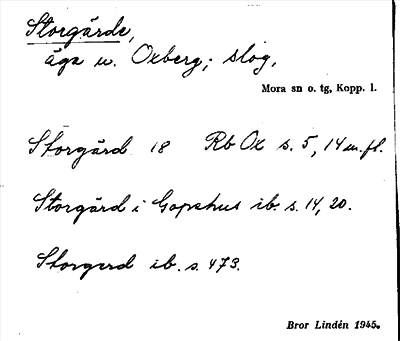 Storgårde,
äga u. Oxberg; slog.
Mora sn o. tg, Kopp. l.
Storgård 18 Rb Ox s. 5, 14 m. fl.
Storgård i Gopshus ib. s. 14, 20.
Storgerd ib. s. 473.
Bror Lindén 1945.